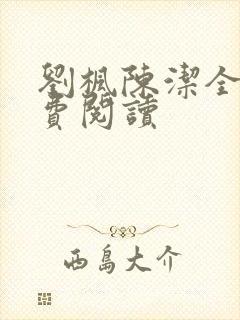 劉楓陳潔全
費閱讀
西島大介